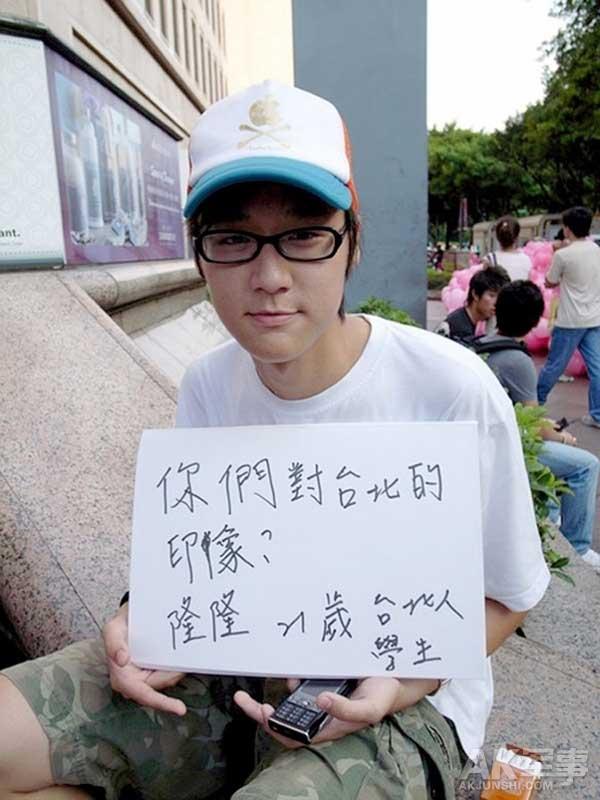 你們對台北的
印像？
隆隆 21歲 台北人
學生
ant.
AK军事
AKJUNSHI.COM